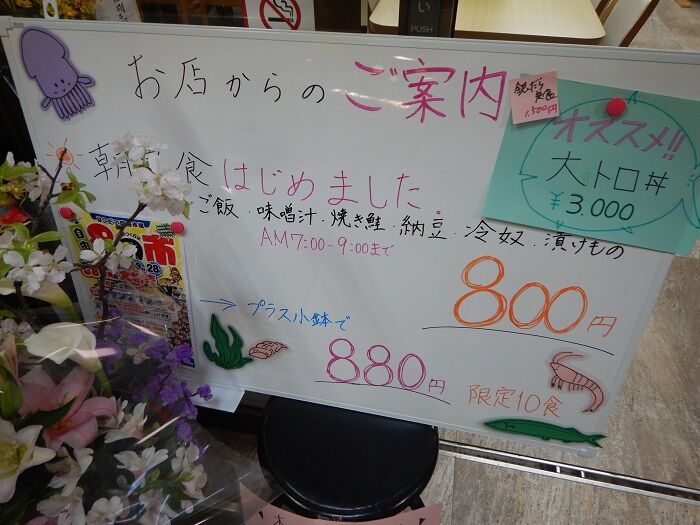 PUSH
お店からのご案内
銀だら
定食
1,500円
オススメ!!
大トロ丼
¥3.000
朝定食はじめました。
ご飯.味噌汁.焼き鮭.納豆.冷奴.漬けもの
AM7:00-9:00まで
800円
→プラス小鉢で
880円
限定10食